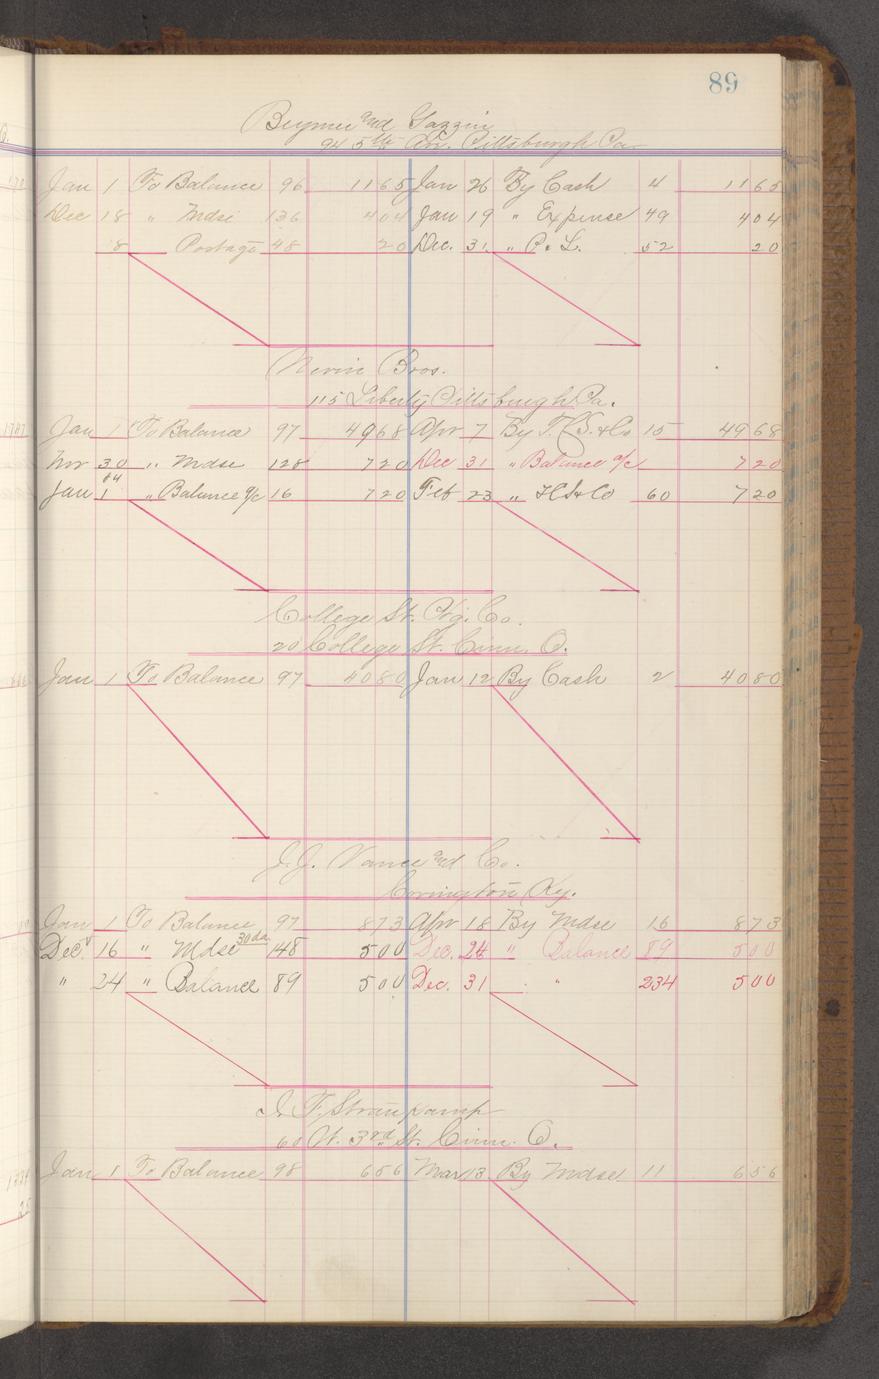 89
Beymer and
94 5th Av. Pittsburgh Pa
Jan 1 To Balance 96 1165 Jan 26 By Cash 4 1165
Dec 18 " Mdse 136 404 Jan 19 " Expense 49 404
18 Postage 48 20 Dec. 31 " P. L. 52 20
Nevin Bros.
115 Liberty Pittsburgh Pa.
Jan 1 To Balance 97 4968 Apr 7 By 15 4968
Nov 30 " Mdse 128 720 Dec 31 " Balance a/c 720
Jan 1 " Balance a/c 16 720 Feb 23 " 60 720
College St. Co.
20 College St. Cinn. O.
Jan 1 To Balance 97 4080 Jan 12 By Cash 2 4080
J. J. Vance and Co.
Covington Ky.
Jan 1 To Balance 97 873 Apr 18 By Mdse 16 873
Dec. 16 " Mdse 30 da 148 500 Dec. 24 " Balance 89 500
" 24 " Balance 89 500 Dec. 31 " 234 500
60 W. 3rd St. Cinn. O.
Jan 1 To Balance 98 656 Mar 13 By Mdse 11 656